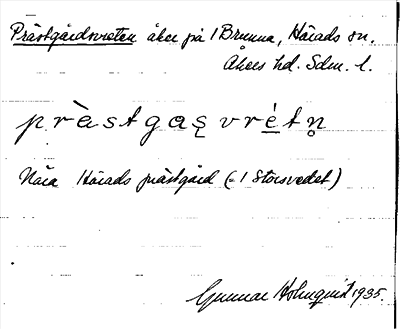 Prästgårdsvreten åker på 1 Brunna, Härads sn.
Åkers hd. Sdm. l.
prà̀stgaş vrét̀n̥
Nära Härads prästgård (= 1 Storsvedet)
Gunnar Holmquist 1935.